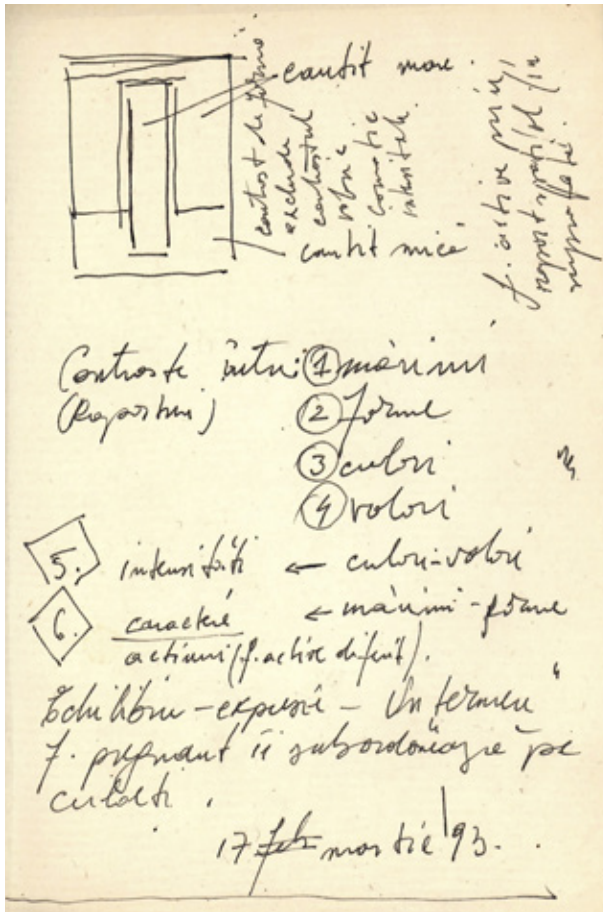 cantit mare.
contrast de forme
exclude
contrastul
valoric
cromatic
intensit.
cantit mică
f. active prin
raport
suprafață.
Contraste între: 1 mărimi
(Raporturi)
2 forme
3 culori
4 valori
5. intensități ← culori-valori
6. caractere ← mărimi-forme
acțiuni (f. active diferit).
Echilibru - expresie - Un termen
f. pregnant îi subordonează pe
ceilalți.
17 feb martie '93.